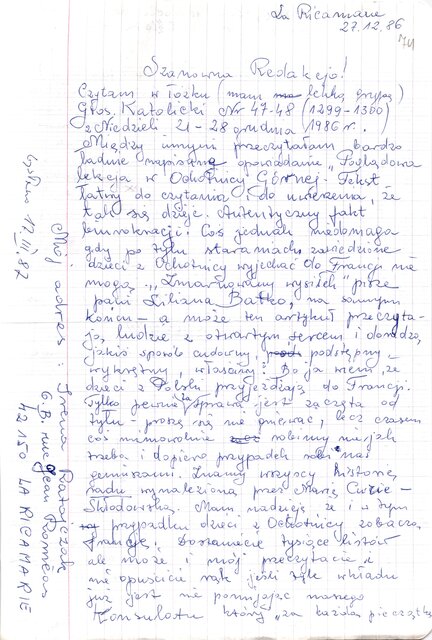 La Ricamarie
27.12.86
Szanowna Redakcjo!
Czytam w łóżku (mam lekką grypę)
Głos Katolicki Nr 47-48 (1299-1300)
z Niedzieli 21-28 grudnia 1986 r.
Między innymi przeczytałam bardzo
ładnie napisane opowiadanie "Poglądowa
lekcja w Ochotnicy Górnej. Tekst
łatwy do czytania i do uwierzenia, że
tak się dzieje. Autentyczny fakt
biurokracji. Coś jednak niedomaga
gdy po tylu staraniach zawiedzione
dzieci z Ochotnicy wyjechać do Francji nie
mogą. "Zmarnowany wysiłek" pisze
pani Liliana Batko, na samym
końcu - a może ten artykuł przeczyta-
ją, ludzie z otwartym sercem i doradzą,
jakiś sposób cudowny, podstępny -
wykrętny, właściwy? Bo ja wiem, że
dzieci z Polski przyjeżdżają do Francji.
Tylko pewnie ta sprawa jest zaczęta od
tyłu - proszę się nie gniewać, lecz czasem
coś mimowolnie robimy nie jak
trzeba i dopiero przypadek robi nas
geniuszami. Znamy wszyscy historię
radu wynalezioną przez Marię Curie -
Skłodowską. Mam nadzieję, że i w tym
przypadku dzieci z Ochotnicy zobaczą
Francję. Dostaniecie tysiące listów
ale może i mój przeczytacie i
nie opuścicie rąk jeśli tyle wkładu
już jest nie pomijając naszego
Konsulatu który "za każdą pieczątkę
Mój adres: Irena Ratajczak
6. B. rue Jean
42150 LA RICAMARIE
12 III 87